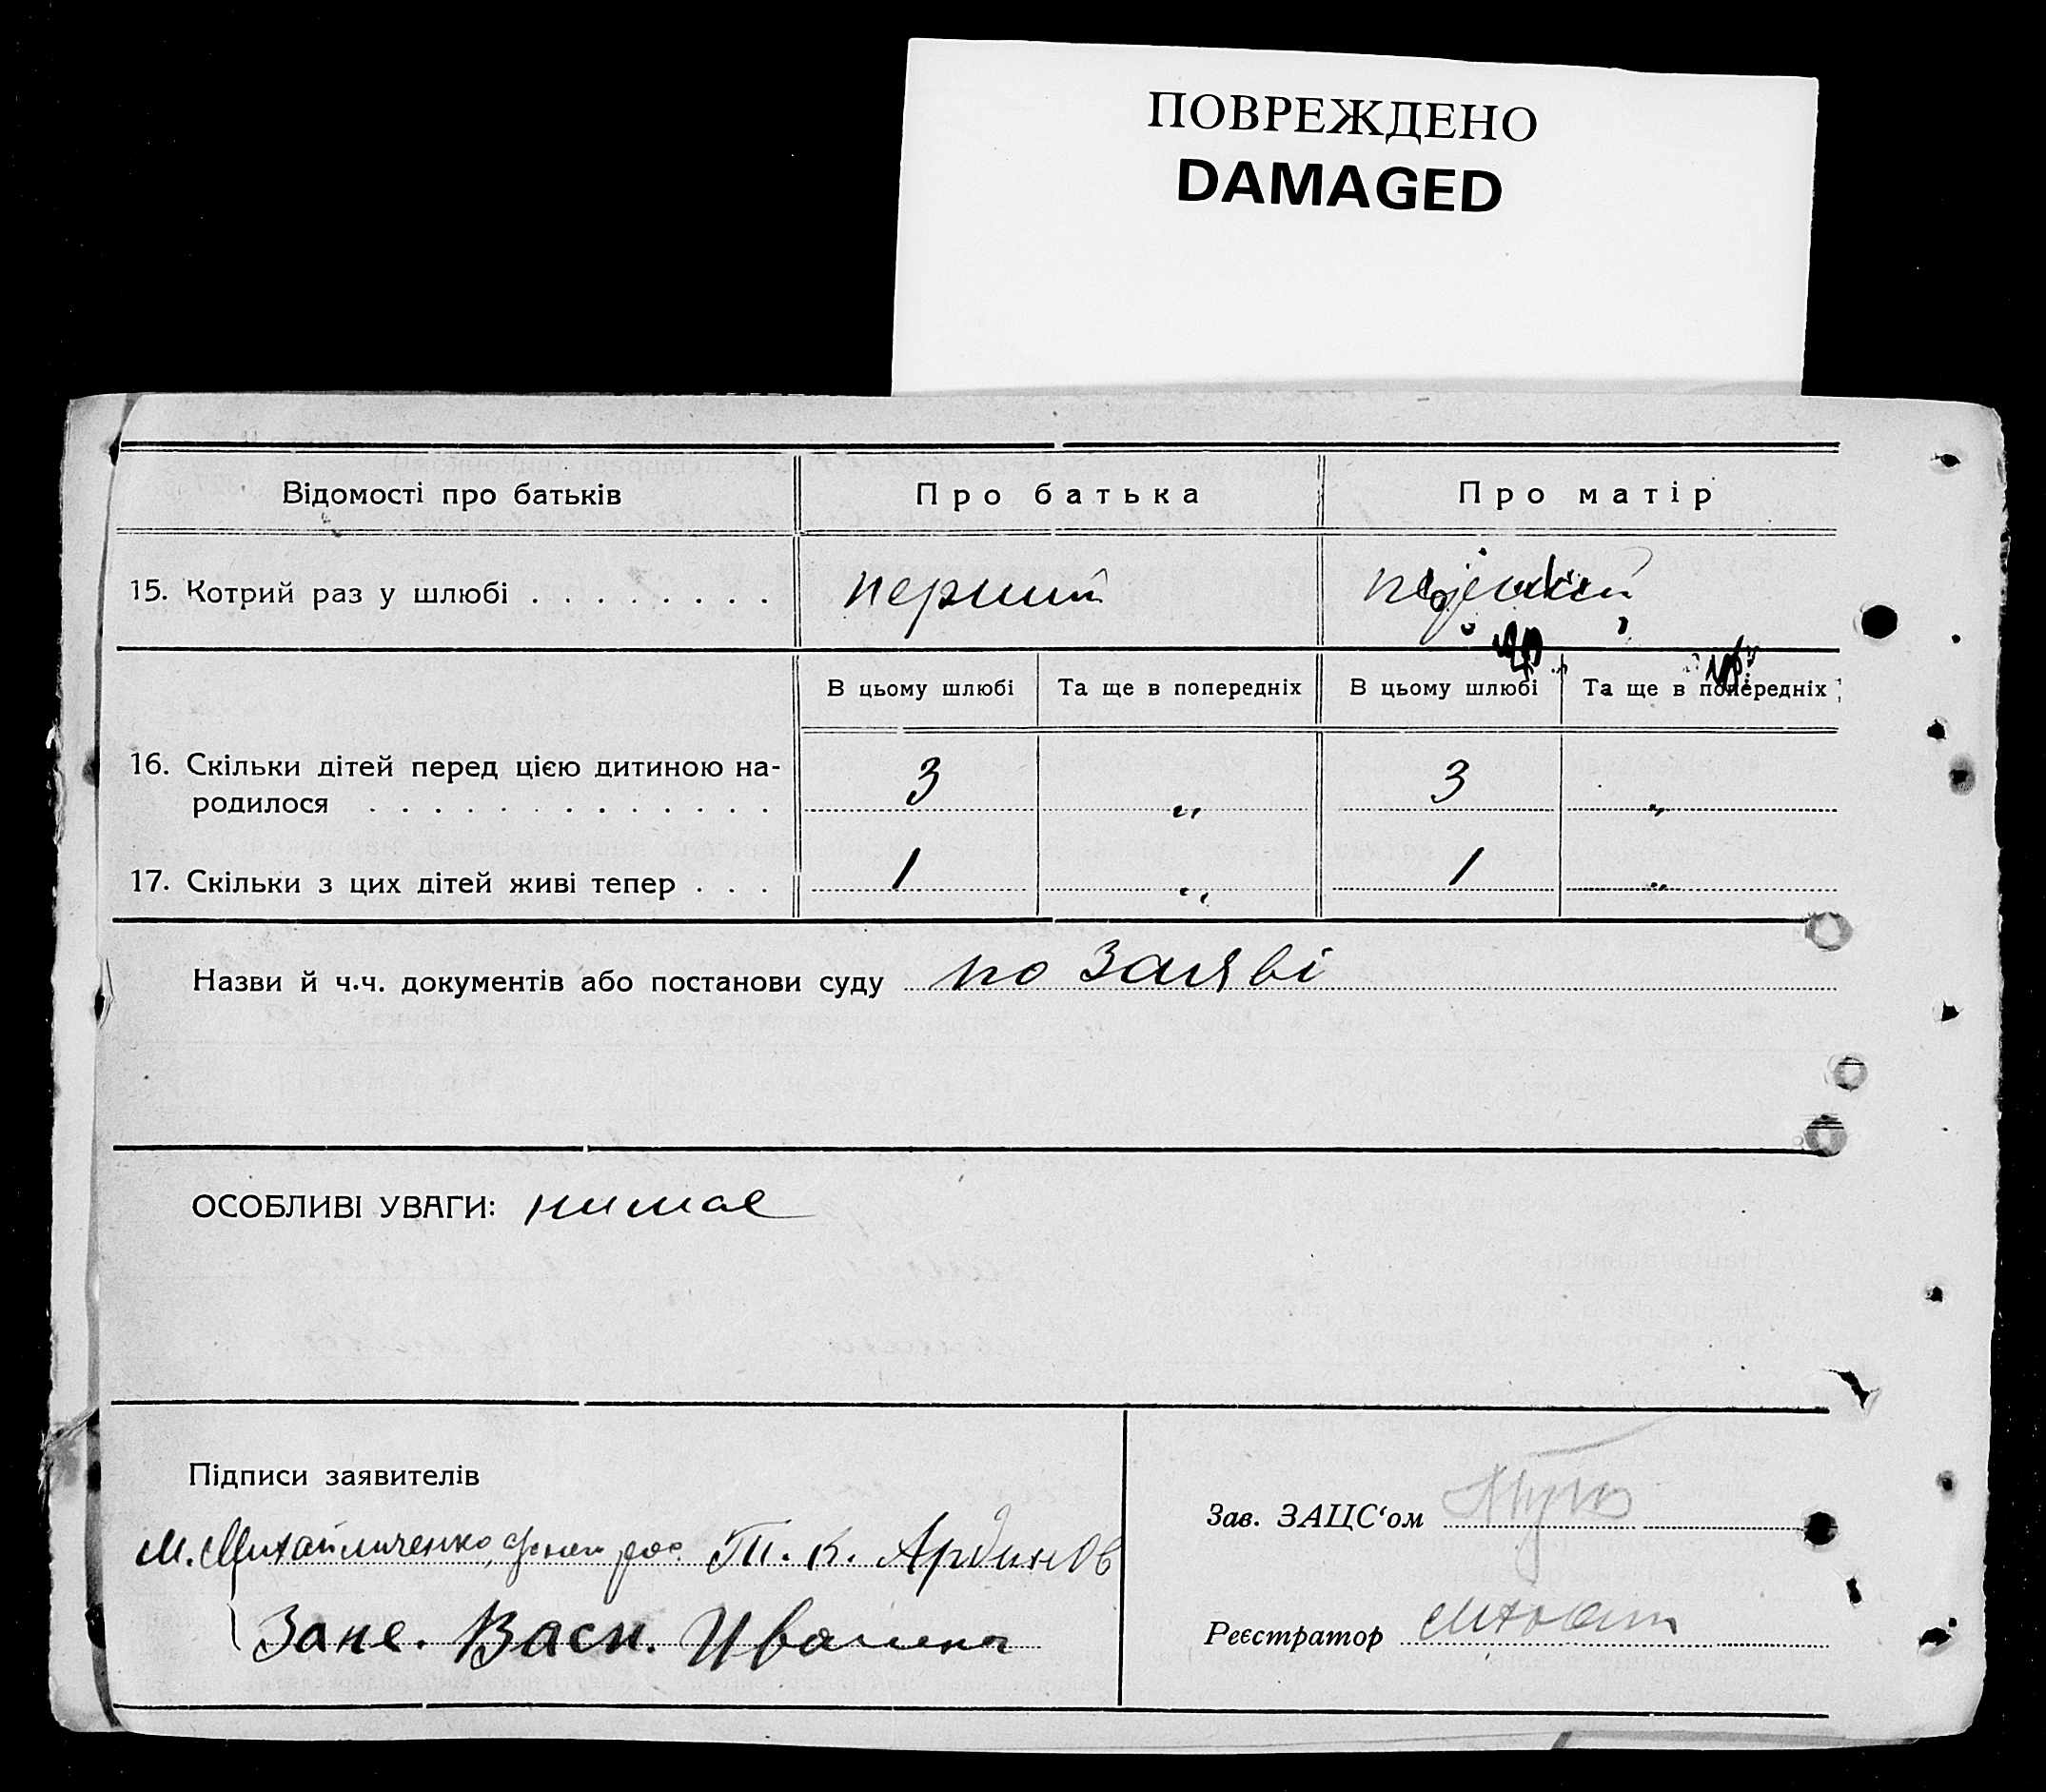 ПОВРЕЖДЕНО
DAMAGED
Відомості про батьків Про батька Про матір
15. Котрий раз у шлюбі . . . . . . . . перший
В цьому шлюбі Та ще в попередніх В цьому шлюбі Та ще в попередніх
16. Скільки дітей перед цією дитиною на-
родилося . . . . . . . . . . . . . 3 „ 3 „
17. Скільки з цих дітей живі тепер . . . 1 „ 1 „
Назви й ч.ч. документів або постанови суду по заяві
ОСОБЛИВІ УВАГИ: нимає
Підписи заявителів
Зав. ЗАЦС‘ом
М. Михайличенко,
Васи.
Реєстратор